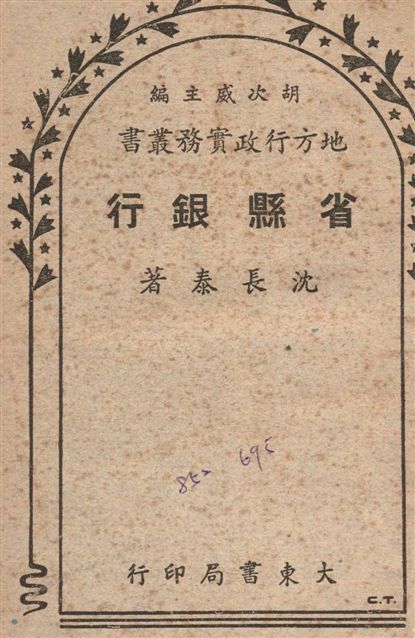 胡次威主編
地方行政實務叢書
省縣銀行
沈長泰著
852 695
大東書局印行
C.T.